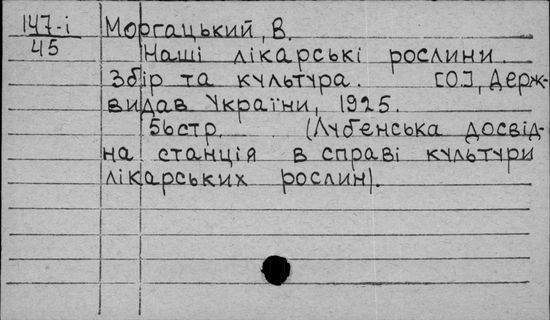 147-і
45
Моргацький, В.
Наші лікарські рослини.
Збір та культура. [О.], Держ-
видав України, 1925.
56стр. (Лубенська досвід-
на станція в справі культури
лікарських рослин).